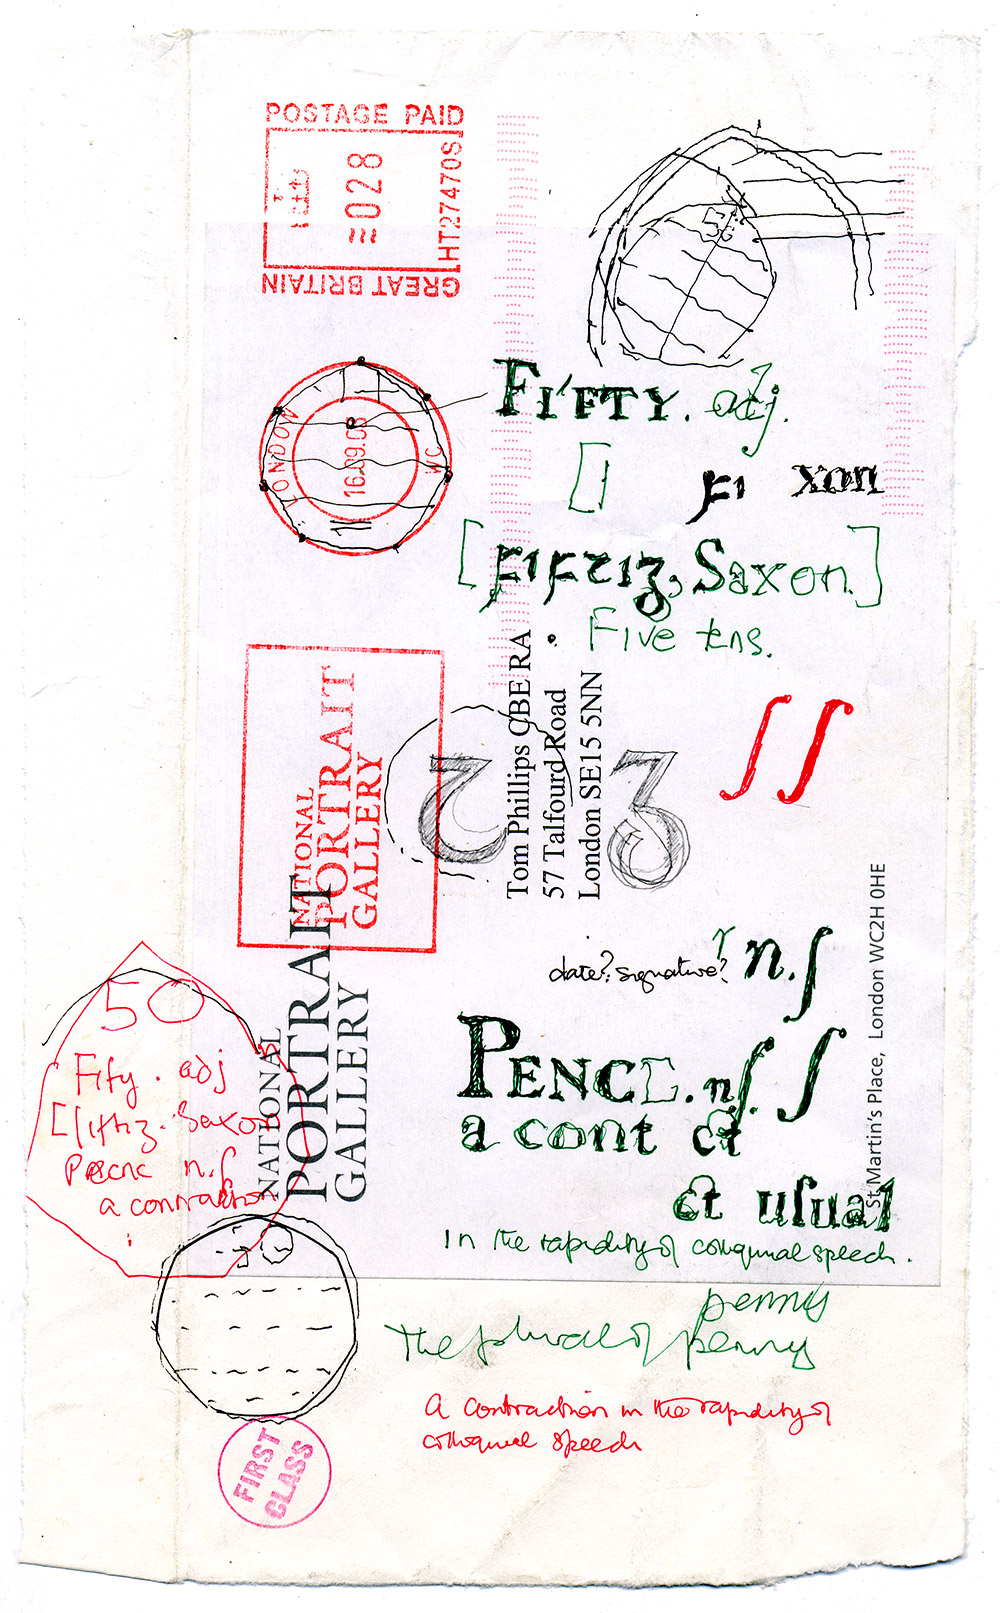 POSTAGE PAID
028
HT27470S
GREAT BRITAIN
50
FIFTY. adj.
[]
ꝼı xon
[ꝼıꝼꞇıᵹ, Saxon.]
Five tens.
LONDON
WC
16.09.05
NATIONAL
PORTRAIT
GALLERY
Tom Phillips CBE RA
57 Talfourd Road
London SE15 5NN
ʃʃ
date? signature?
n.ſ
PENCE. n.ſ. ſ
a cont ct
ct uſual
In the rapidity of colloquial speech.
penny
The plural of penny
A contraction in the rapidity of
colloquial speech
50
Fify. adj
Saxon
Pecnc n.ſ
a contraction
NATIONAL
PORTRAIT
GALLERY
St Martin's Place, London WC2H 0HE
FIRST
CLASS